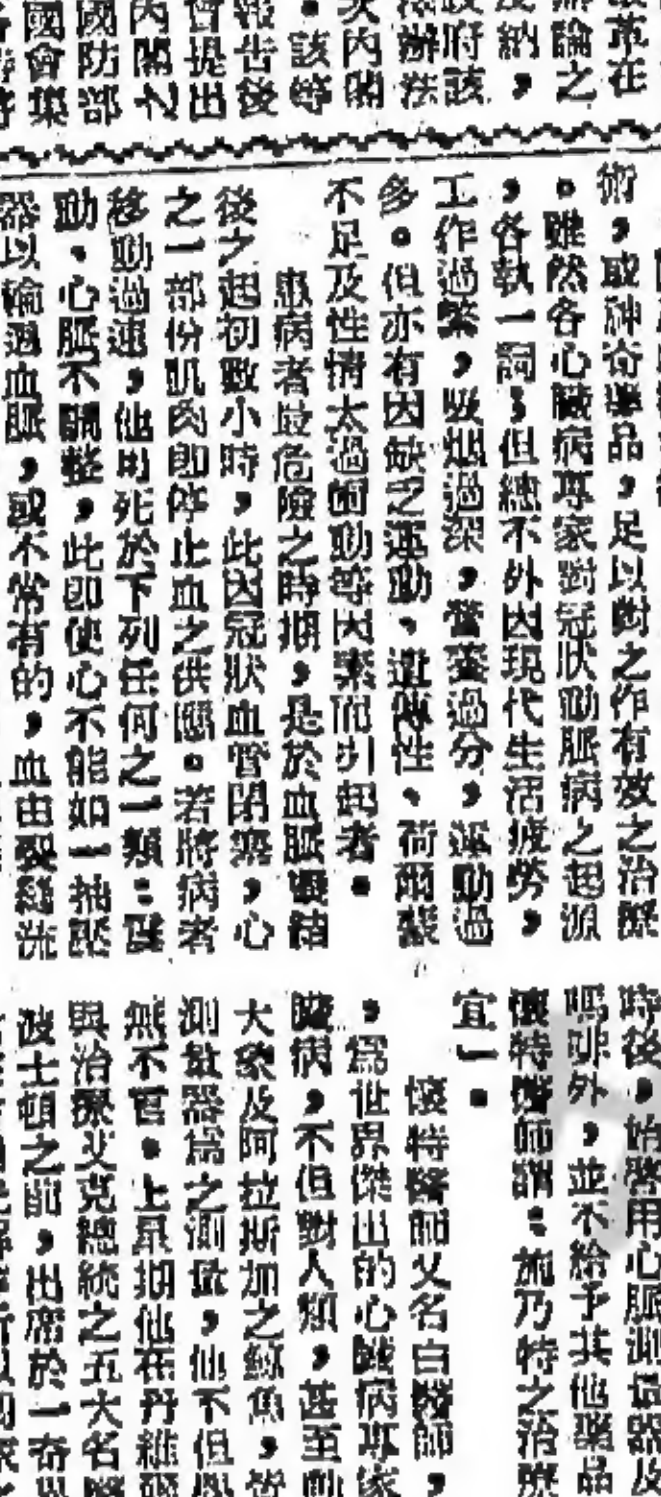 革在
論之
納，
政府該
辦法
次內閣
。該等
報告後
會提出
內閣之
國防部
國會集
術，或神奇藥品，足以對之作有效之治療
。雖然各心臟病專家對冠狀動脈病之起源
，各執一詞；但總不外因現代生活疲勞，
工作過繁，吸烟過深，營養過分，運動過
多。但亦有因缺乏運動、遺傳性、荷爾蒙
不足及性情太過衝動等因素而引起者。
患病者最危險之時期，是於血脈凝結
後之起初數小時，此因冠狀血管閉塞，心
之一部份肌肉即停止血之供應。若將病者
移動過速，他即死於下列任何之一類：
動、心脈不調整，此即使心不能如一抽壓
器以輸週血脈，或不常有的，血由裂縫流
時後，始啓用心脈測量器及
嗎啡外，並不給予其他藥品
懷特醫師謂：施乃特之治療
宜一。
懷特醫師又名白醫師，
，爲世界傑出的心臟病專家
臟病，不但對人類，甚至動
大象及阿拉斯加之鯨魚，皆
測量器爲之測量，他不但
無不官。上星期他在丹維
與治療艾克總統之五大名醫
波士頓之前，出席於一